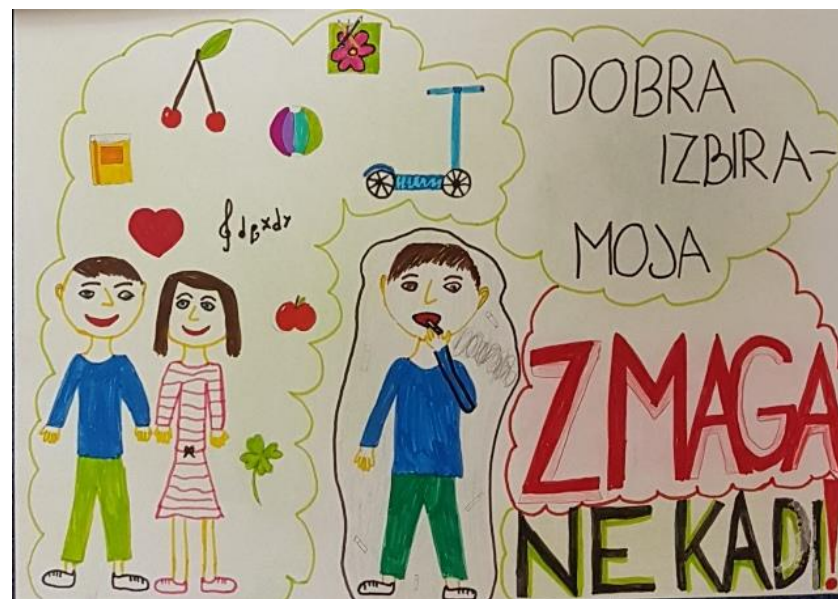 DOBRA
IZBIRA-
MOJA
ZMAGA
NE KADI!